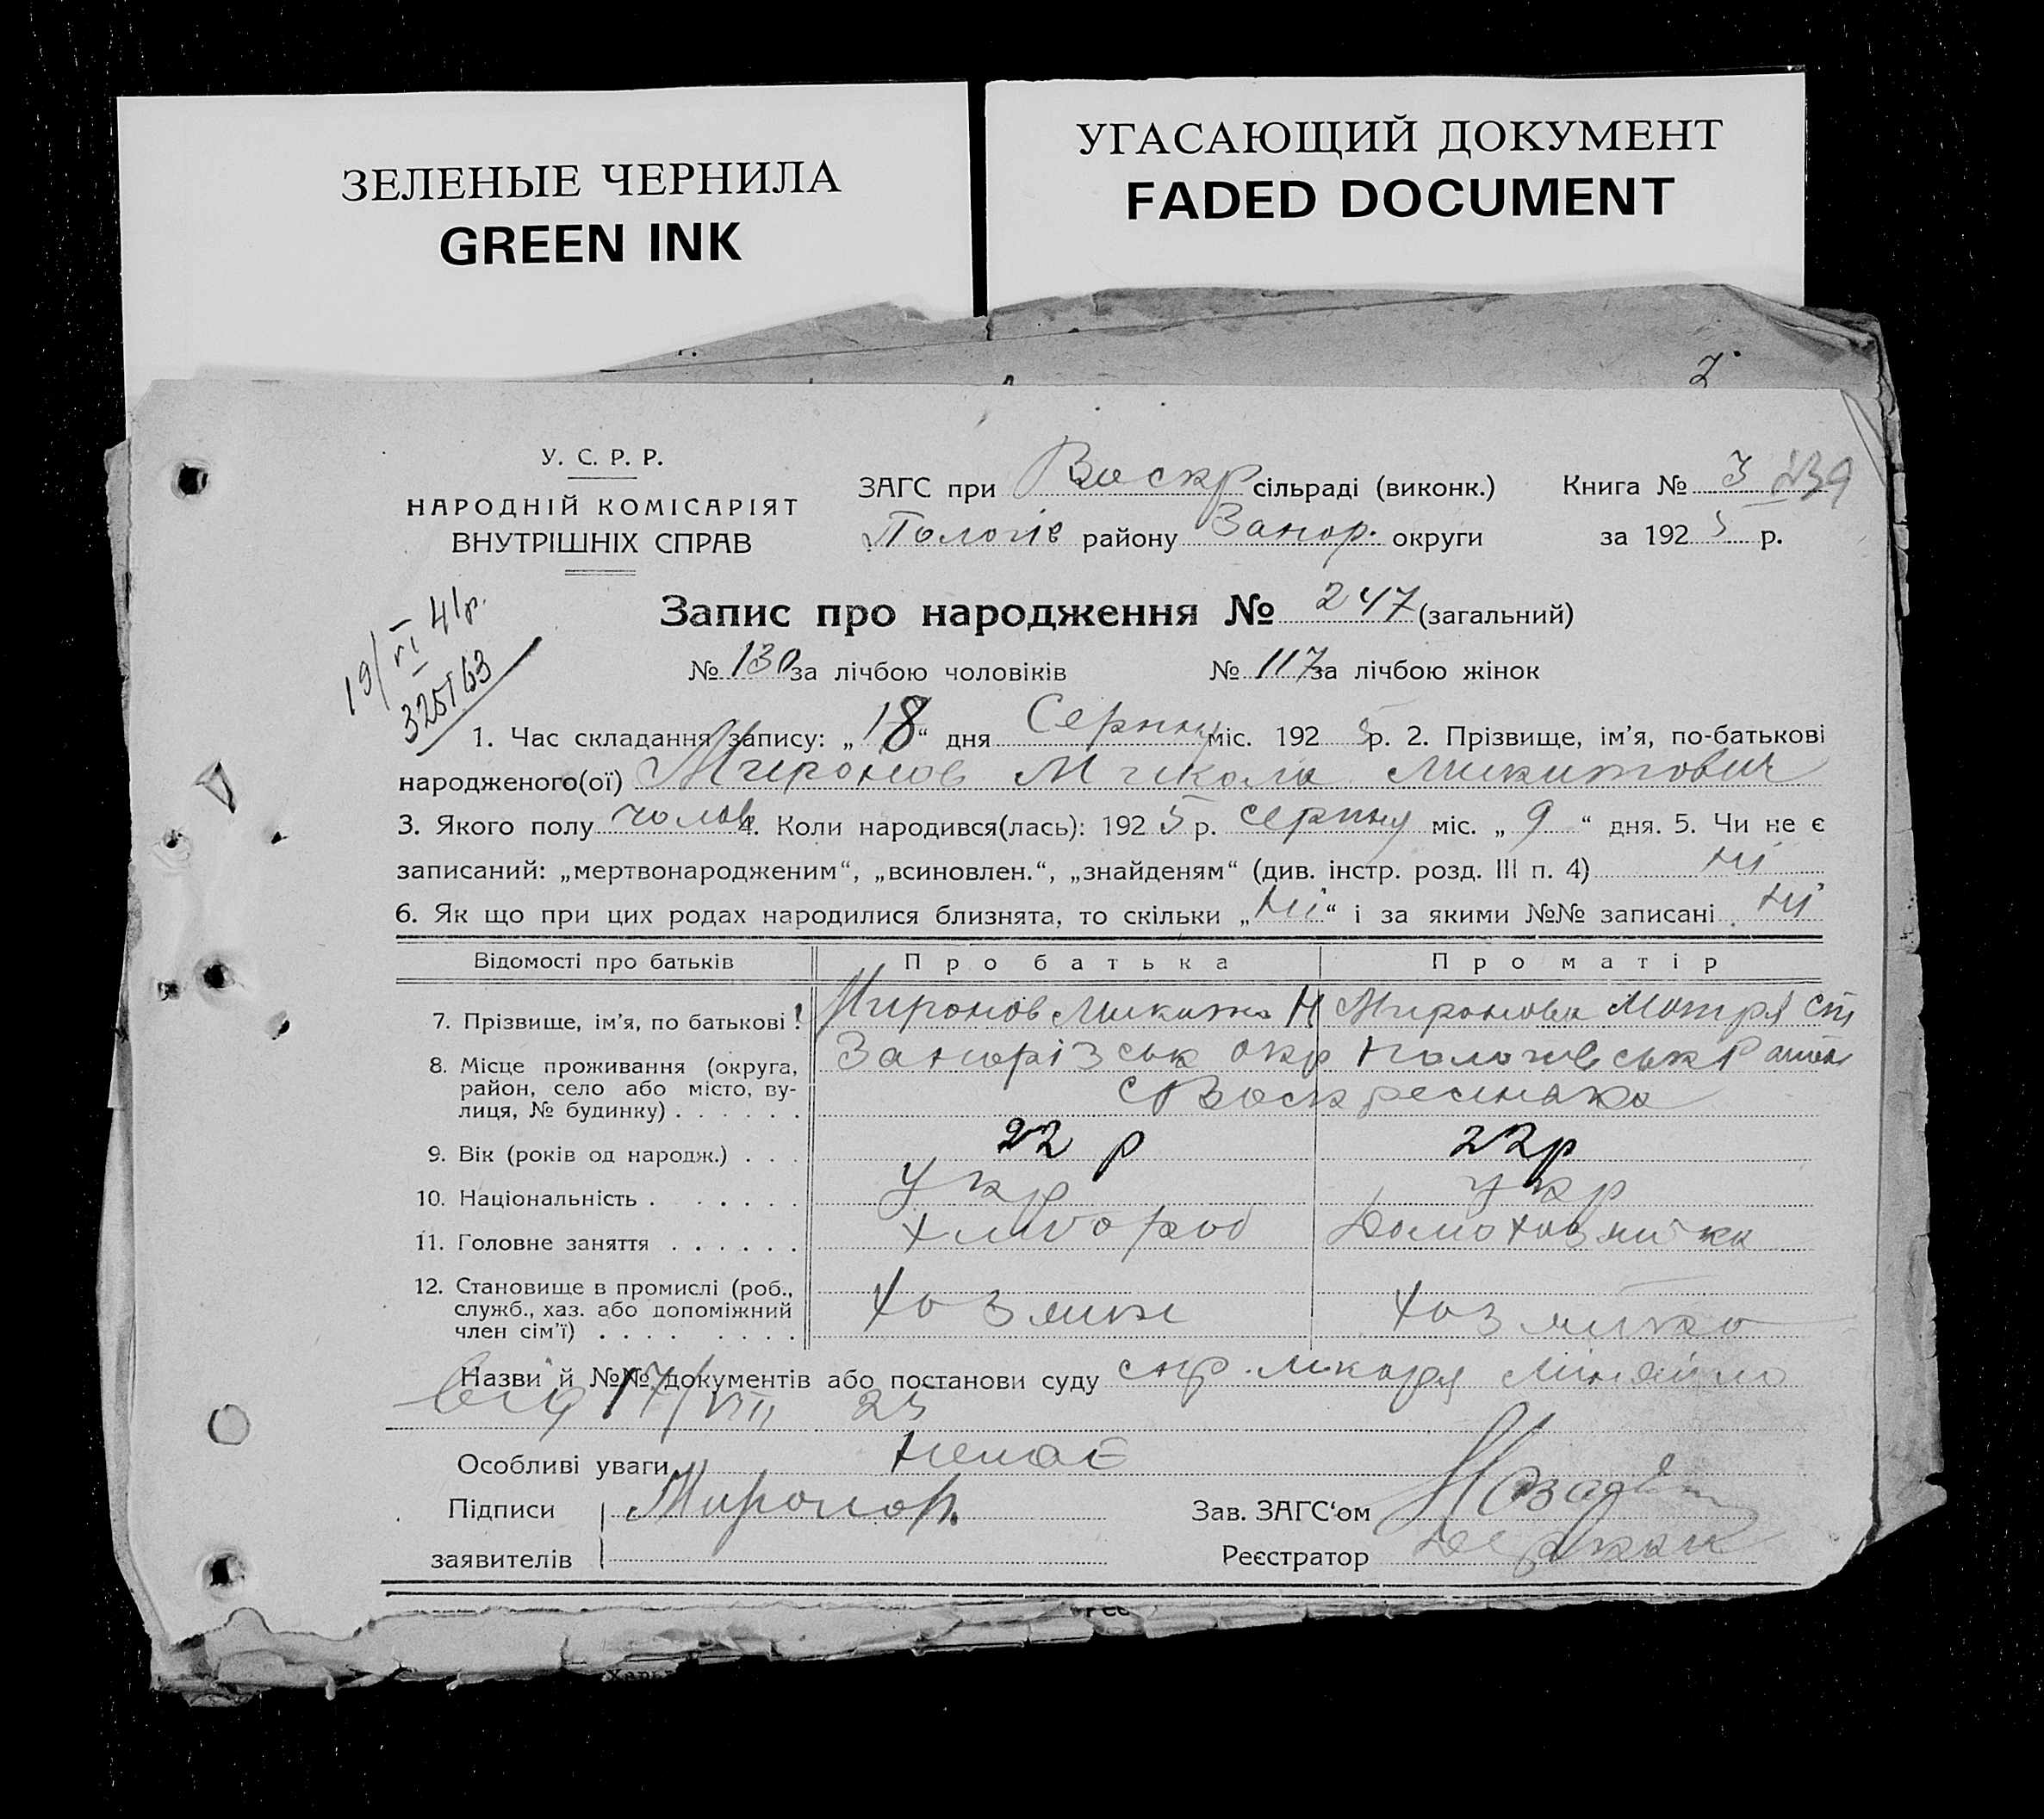 ЗЕЛЕНЫЕ ЧЕРНИЛА
GREEN INK
УГАСАЮЩИЙ ДОКУМЕНТ
FADED DOCUMENT
У. С. Р. Р.
НАРОДНІЙ КОМІСАРІЯТ
ВНУТРІШНІХ СПРАВ
ЗАГС при Воскр сільраді (виконк.) Книга № 3 239
Пологів району Запор. округи за 1925 р.
19/VI 41р.
Запис про народження № 247 (загальний)
№ 130 за лічбою чоловіків № 117 за лічбою жінок
1. Час складання запису: „18“ дня Серпня міс. 1925 р. 2. Прізвище, ім'я, по-батькові
народженого(ої) Миронов Микола Микитович
3. Якого полу чолов 4. Коли народився(лась): 1925 р. серпня міс. „9“ дня. 5. Чи не є
записаний: „мертвонародженим“, „всиновлен.“, „знайденям“ (див. інстр. розд. III п. 4) ні
6. Як що при цих родах народилися близнята, то скільки „ні“ і за якими №№ записані ні
Відомості про батьків Про батька Про матір
7. Прізвище, ім'я, по батькові Миронов Микита Н Миронова Мотря Ст
8. Місце проживання (округа, район, село або місто, вулиця, № будинку) Запорізськ окр Пологівськ
с Воскресенка
9. Вік (років од народж.) 22 р 22 р
10. Національність укр укр
11. Головне заняття хлібороб Домохазяйка
12. Становище в промислі (роб., служб., хаз. або допоміжний член сім'ї) хозяин хозяйка
Назви й №№ документів або постанови суду спр. лікаря
від 17/VIII 25
Особливі уваги немає
Підписи Миронов. Зав. ЗАГС'ом
заявителів Реєстратор